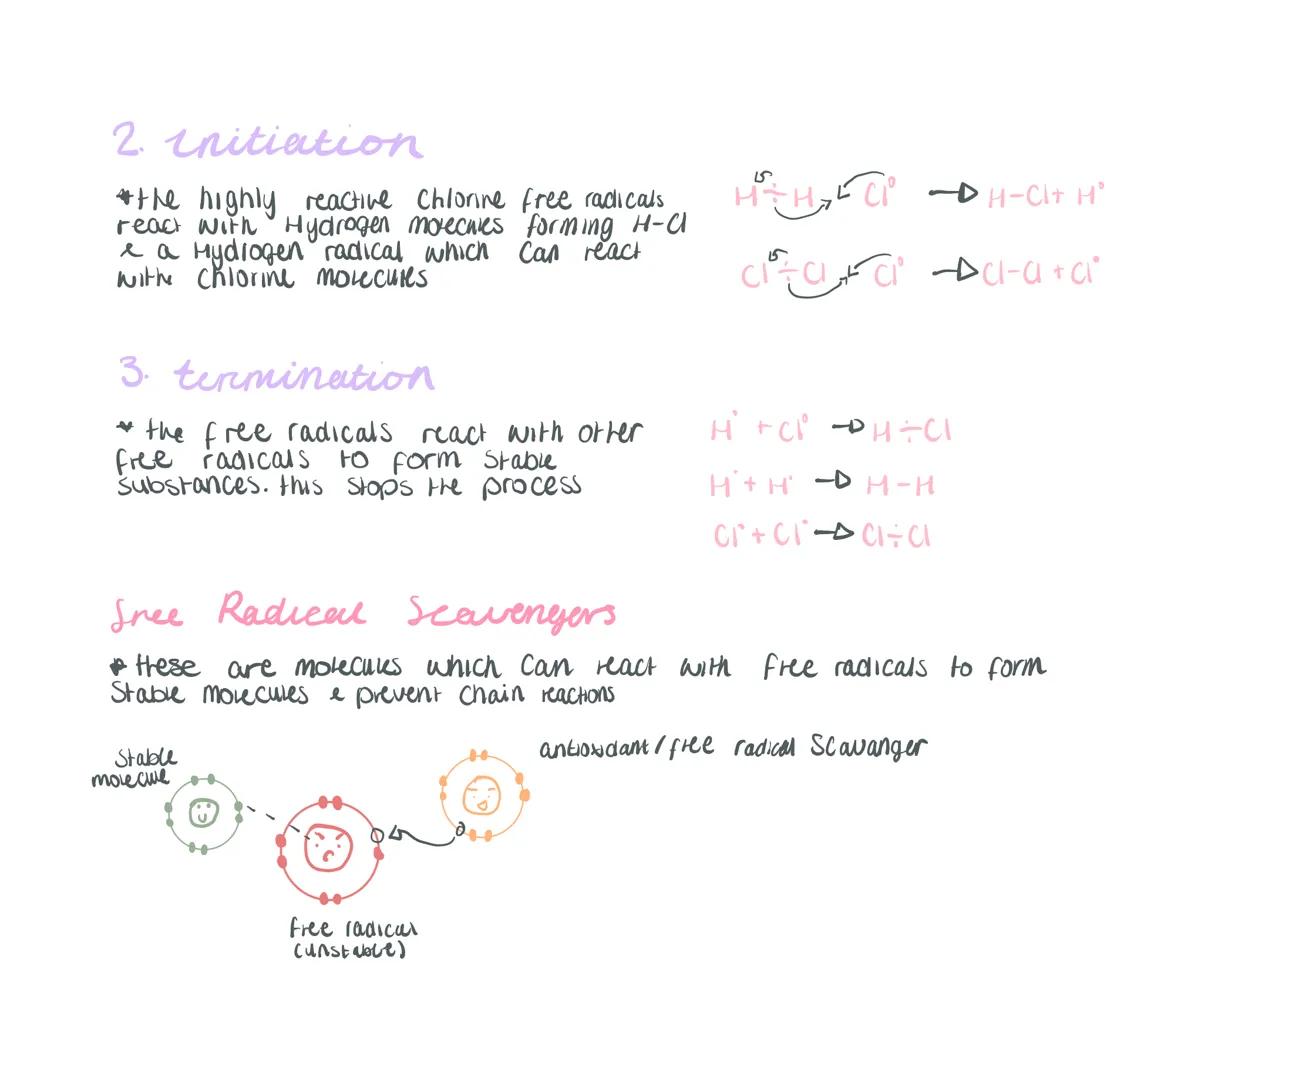 2. Initiation
*the highly reactive Chlorine free radicals
react with Hydrogen molecules forming H-Cl
& a Hydrogen radical which Can react
with Chlorine molecules
H÷H Cl° → H-Cl + H°
Cl÷Cl Cl° → Cl-Cl + Cl•
3. termination
* the free radicals react with other
free radicals to form Stable
substances. this stops the process
H• + Cl° → H÷Cl
H• + H• → H-H
Cl• + Cl• → Cl÷Cl
free Radical Scavengers
* these are molecules which Can react with free radicals to form
Stable molecules & prevent Chain reactions
Stable
molecule
antioxidant/free radical Scavanger
free radical
(unstable)